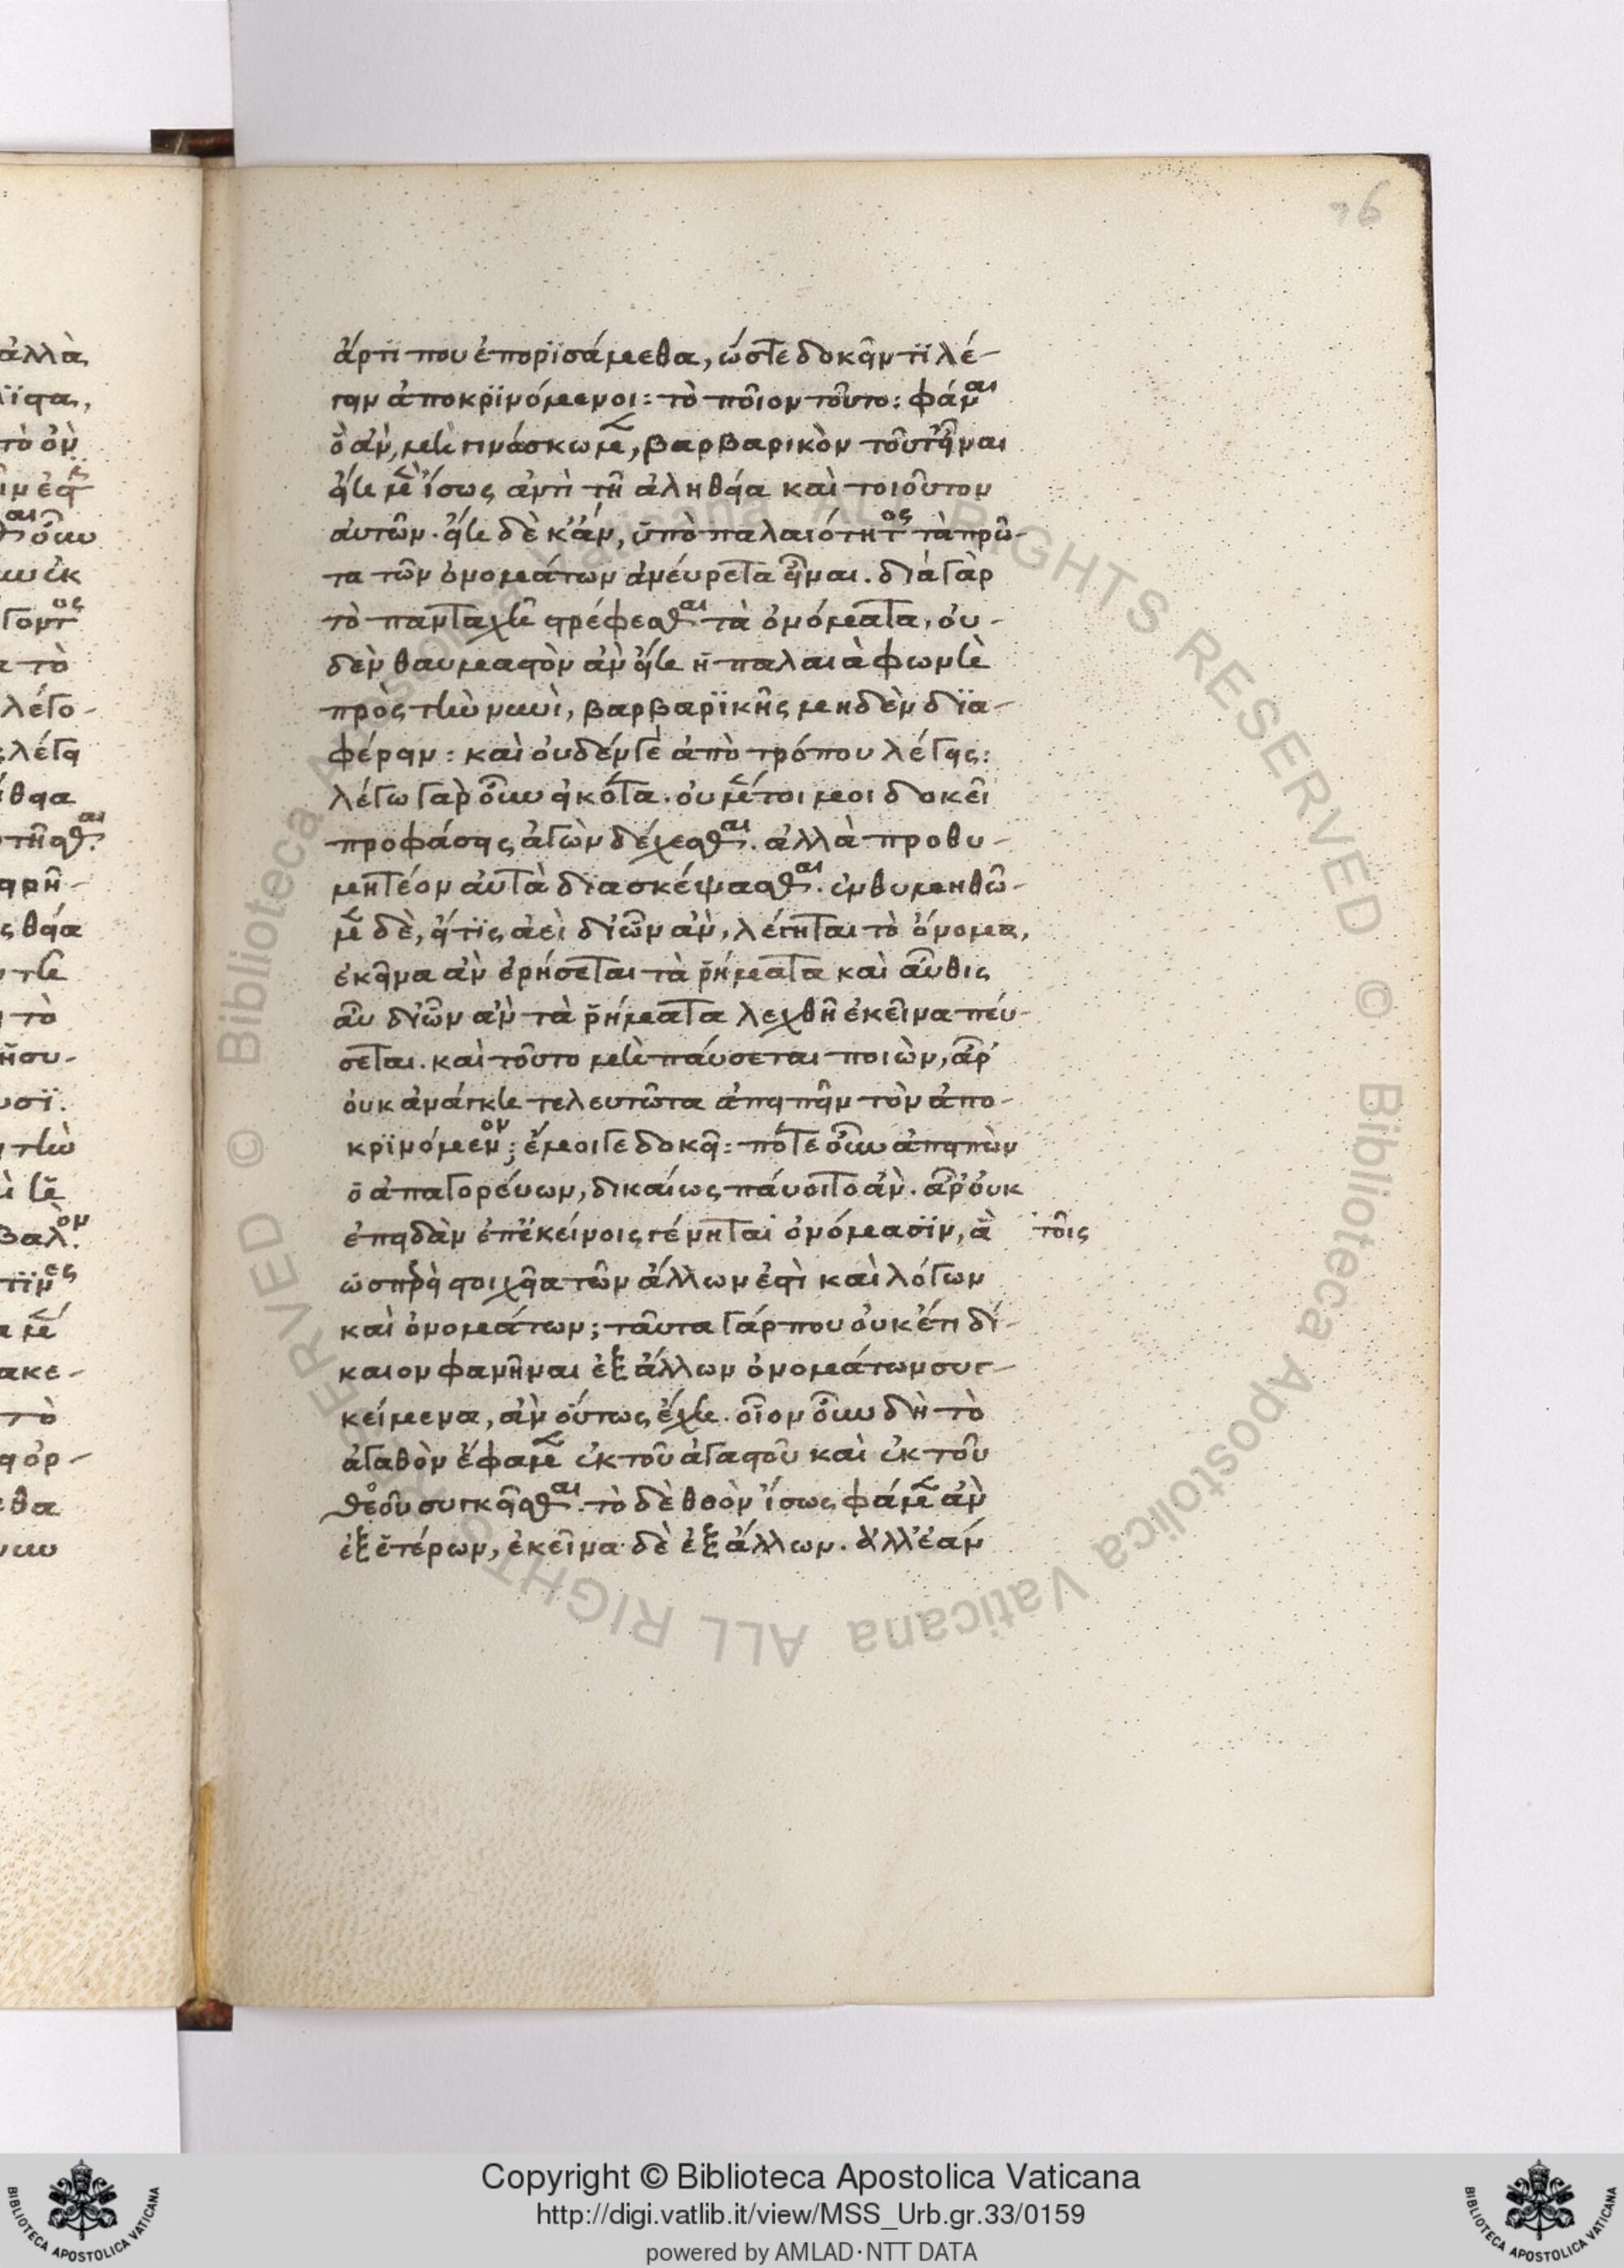 ἀλλὰ
τὸ ὂν
α τὸ
λέγο-
λέγει
τὸ
τὸ
76
ἄρτϊ που ἐπορϊσάμεθα, ὥστε δοκεῖν τϊ λέ-
γειν ἀποκρϊνόμενοι: τὸ ποῖον τοῦτο: φάναι
ὃ ἂν μὴ γινώσκωμεν, βαρβαρικὸν τοῦτ' εἶναι
εἴη μὲν ἴσως ἀντὶ τῆ ἀληθεία καὶ τοιοῦτον
αὐτῶν. εἴη δὲ κἂν, ὑπὸ παλαιότητος τὰ πρῶ-
τα τῶν ὀνομάτων ἀνεύρετα εἶναι. διὰ γὰρ
τὸ πανταχῆ στρέφεσθαι τὰ ὀνόματα, οὐ-
δὲν θαυμαστὸν ἂν εἴη ἡ παλαιὰ φωνὴ
πρὸς τὴν νυνὶ, βαρβαρϊκῆς μηδὲν δϊα-
φέρειν: καὶ οὐδέν γε ἀπὸ τρόπου λέγεις:
λέγω γὰρ οὖν εἰκότα. οὐ μέντοι μοι δοκεῖ
προφάσεις ἀγὼν δέχεσθαι. ἀλλὰ προθυ-
μητέον αὐτὰ διασκέψασθαι. ἐνθυμηθῶ-
μεν δὲ, εἴ τϊς ἀεὶ δι' ὧν ἂν, λέγηται τὸ ὄνομα,
ἐκεῖνα ἂν ἐρήσεται τὰ ῥήματα καὶ αὖθις
αὖ δι' ὧν ἂν τὰ ῥήματα λεχθῆ ἐκεῖνα πεύ-
σεται. καὶ τοῦτο μὴ παύσεται ποιὼν, ἆρ'
οὐκ ἀνάγκη τελευτῶτα ἀπειπεῖν τὸν ἀπο-
κρϊνόμενον; ἔμοιγε δοκεῖ: πότε οὖν ἀπειπὼν
ὁ ἀπαγορεύων, δικαίως παύοιτο ἂν. ἆρ' οὐκ
ἐπειδὰν ἐπ' ἐκείνοις γένηται ὀνόμασϊν, ἃ τοῖς
ὡσπερεὶ στοιχεῖα τῶν ἄλλων ἐστὶ καὶ λόγων
καὶ ὀνομάτων; ταῦτα γάρ που οὐκέτι δί-
καιον φανῆναι ἐξ ἄλλων ὀνομάτων συγ-
κείμενα, ἂν οὕτως ἔχη. οἷον οὖν δὴ τὸ
ἀγαθὸν ἔφαμεν ἐκ τοῦ ἀγαστοῦ καὶ ἐκ τοῦ
θεοῦ συγκεῖσθαι. τὸ δὲ θοὸν ἴσως φάμεν ἂν
ἐξ ἑτέρων, ἐκεῖνα δὲ ἐξ ἄλλων. ἀλλ' ἐάν
Copyright © Biblioteca Apostolica Vaticana
http://digi.vatlib.it/view/MSS_Urb.gr.33/0159
powered by AMLAD·NTT DATA
BIBLIOTECA APOSTOLICA VATICANA
BIBLIOTECA APOSTOLICA VATICANA
© Biblioteca Apostolica Vaticana ALL RIGHTS RESERVED © Biblioteca Apostolica Vaticana ALL RIGHTS RESERVED